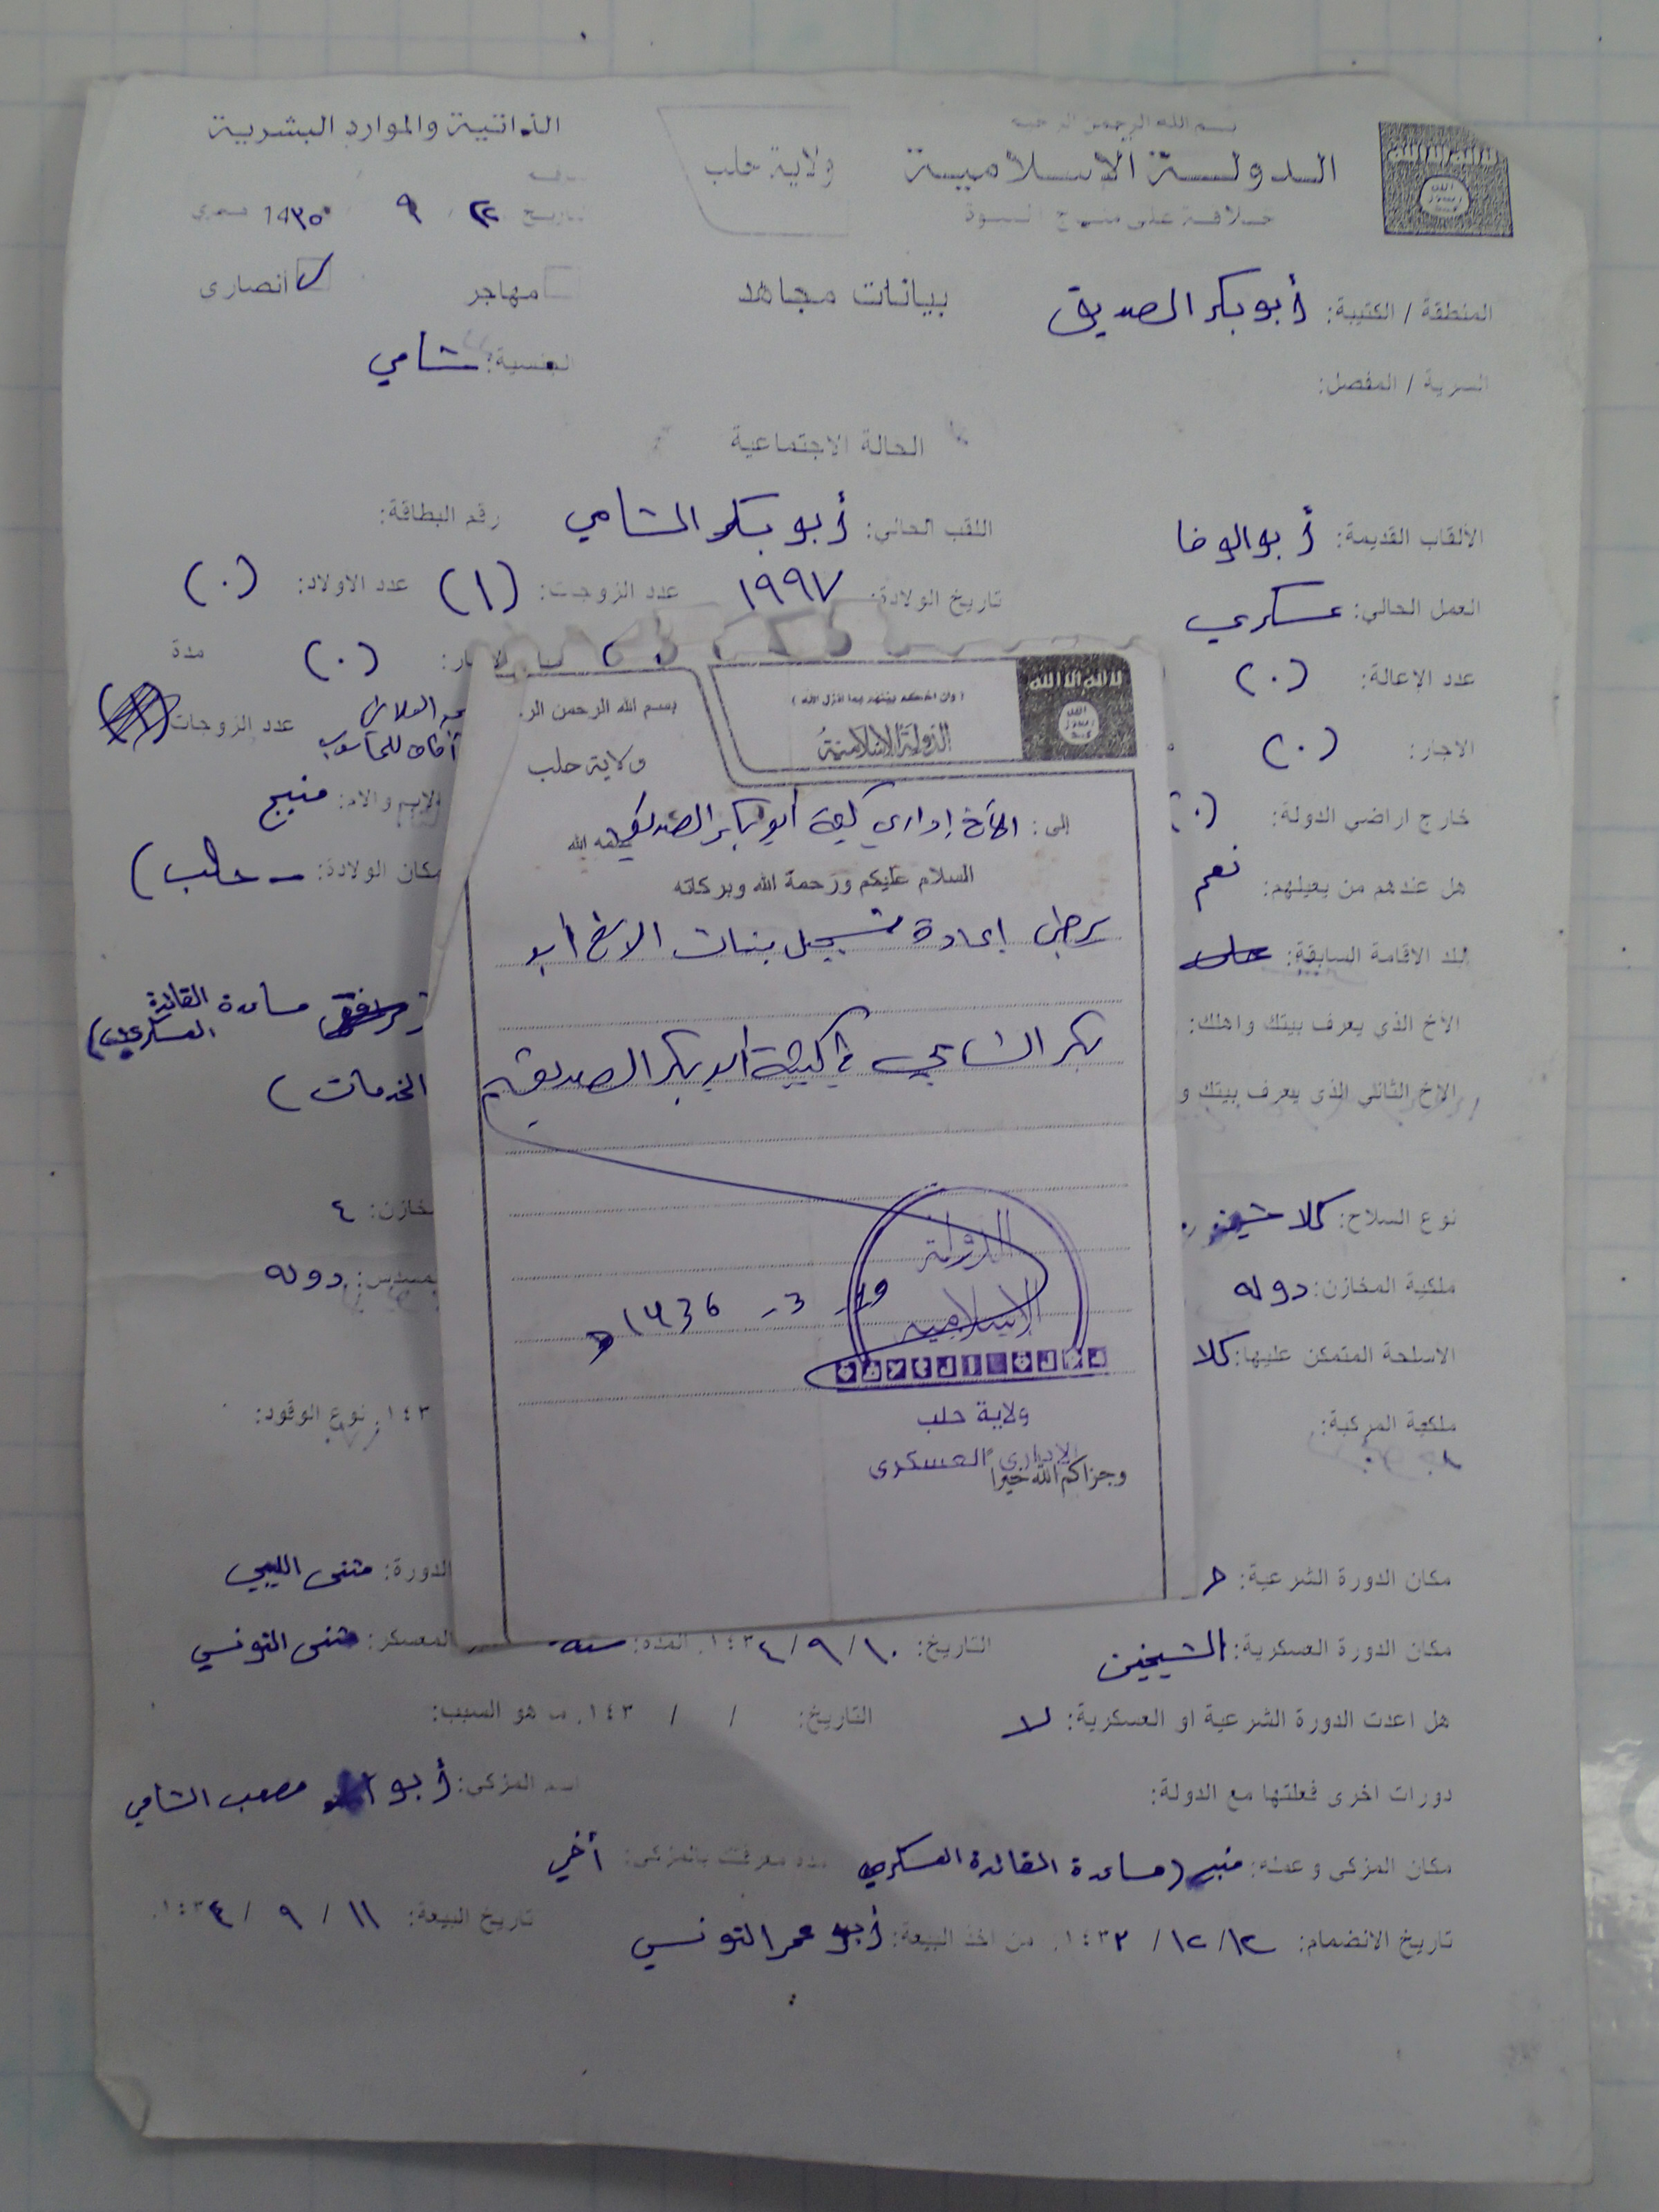 بسم الله الرحمن الرحيم
الدولة الاسلامية
خلافة على منهاج النبوة
ولاية حلب
الذاتية والموارد البشرية
التاريخ ٢٢ / ٩ / ١٤٣٥ هجري
بيانات مجاهد
مهاجر
أنصاري
المنطقة / الكتيبة: أبو بكر الصديق
الجنسية: شامي
السرية / المفصل:
الحالة الاجتماعية
الألقاب القديمة: أبو الوفا اللقب الحالي: أبو بكر الشامي رقم البطاقة:
العمل الحالي: عسكري تاريخ الولادة: ١٩٩٧ عدد الزوجات: (١) عدد الاولاد: (٠)
عدد الإعالة: (٠) (٠) مدة
الاجار: (٠) عدد الزوجات
خارج اراضي الدولة: والام: منبج
هل عندهم من يعيلهم: نعم مكان الولادة: حلب)
بلد الاقامة السابقة: حلب
الأخ الذي يعرف بيتك واهلك: مساعدة القائدة العسكري)
الاخ الثاني الذي يعرف بيتك و الخدمات)
نوع السلاح: كلاشين مخازن: ٤
ملكية المخازن: دوله المسدس: دوله
الاسلحة المتمكن عليها: كلا
ملكية المركبة: ١٤٣ نوع الوقود:
مكان الدورة الشرعية: الدورة: مثنى الليبي
مكان الدورة العسكرية: الشيخين التاريخ: ١٠/ ٩/ ١٤٣٤ المدة: المعسكر: مثنى التونسي
هل اعدت الدورة الشرعية او العسكرية: لا التاريخ: / / ١٤٣ ما هو السبب:
دورات اخرى فعلتها مع الدولة: اسم المزكي: أبو مصعب الشامي
مكان المزكي وعمله: منبج (مساعدة القائدة العسكري مدة معرفتك بالمزكي: أخي
تاريخ الانضمام: ١٢/ ١٢/ ١٤٣٣ من اخذ البيعة: أبو عمر التونسي تاريخ البيعة: ١١ / ٩ / ١٤٣٤
لا اله الا الله
الله رسول محمد
( وان احكم بينهم بما انزل الله )
الدولة الإسلامية
بسم الله الرحمن الر
ولاية حلب
إلى: الأخ إداري كتيبة أبو بكر الصديق حفظه الله
السلام عليكم ورحمة الله وبركاته
يرجى إعادة تسجيل بنات الاخ ابو
بكر الشامي في كتيبة ابو بكر الصديق
الدولة
الإسلامية
19 - 3 - 1436 ه
ولاية حلب
الإداري العسكري
وجزاكم الله خيرا